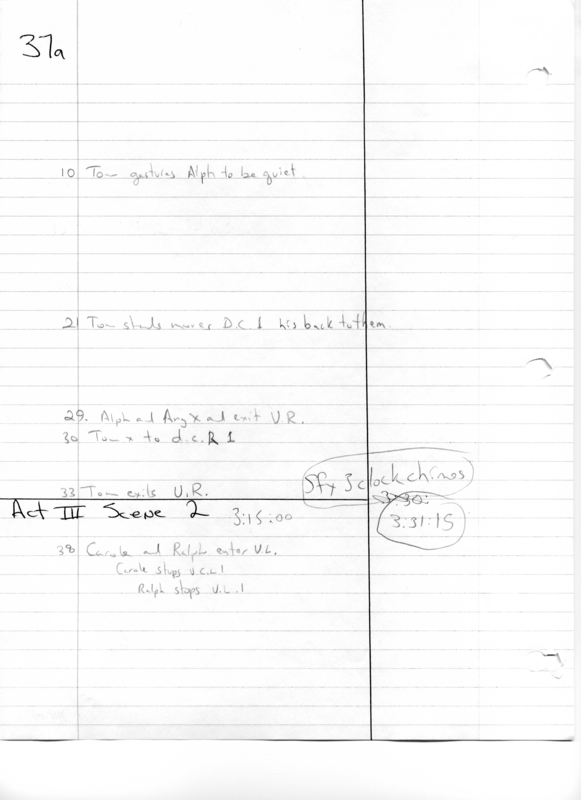 37a
10 Tom gestures Alph to be quiet.
21 Tom stands moves D.C. 1 his back to them.
29. Alph and Ang x and exit U.R.
30 Tom x to d.c.R 1
Sfx 3 clock chimes
33 Tom exits U.R.
3:30:
Act III Scene 2 3:15:00
3:31:15
38 Carole and Ralph enter U.L.
Carole stops U.C.L 1
Ralph stops U.L.1